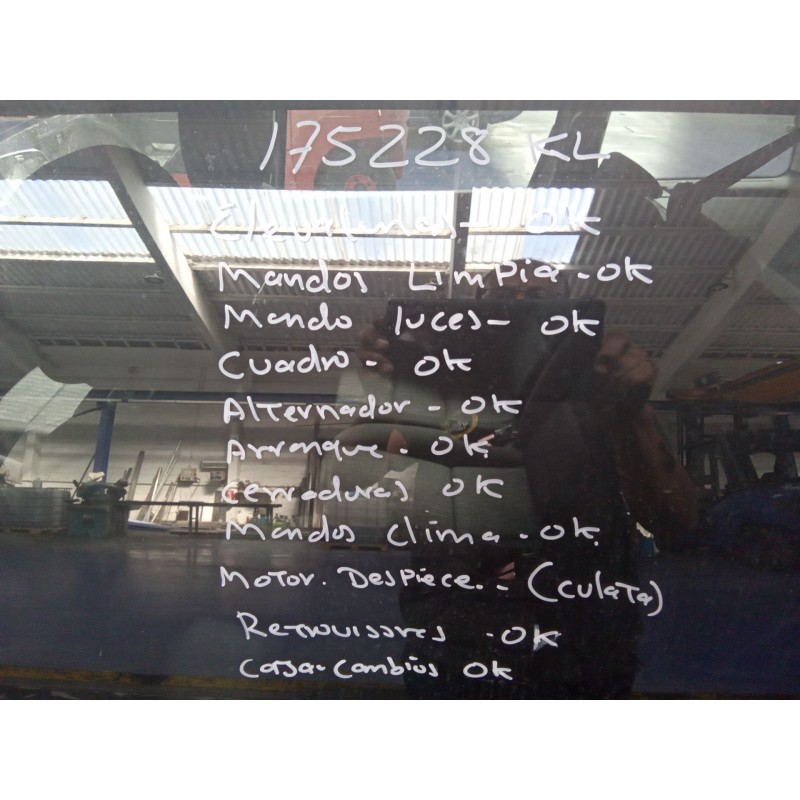 175228 KL
Elevalunas - OK
Mandos Limpia - OK
Mando luces - OK
Cuadro - OK
Alternador - OK
Arranque. OK
Cerraduras OK
Mandos Clima. OK.
Motor. Despiece. - (Culata)
Retrovisores - OK
Caja-Cambios OK